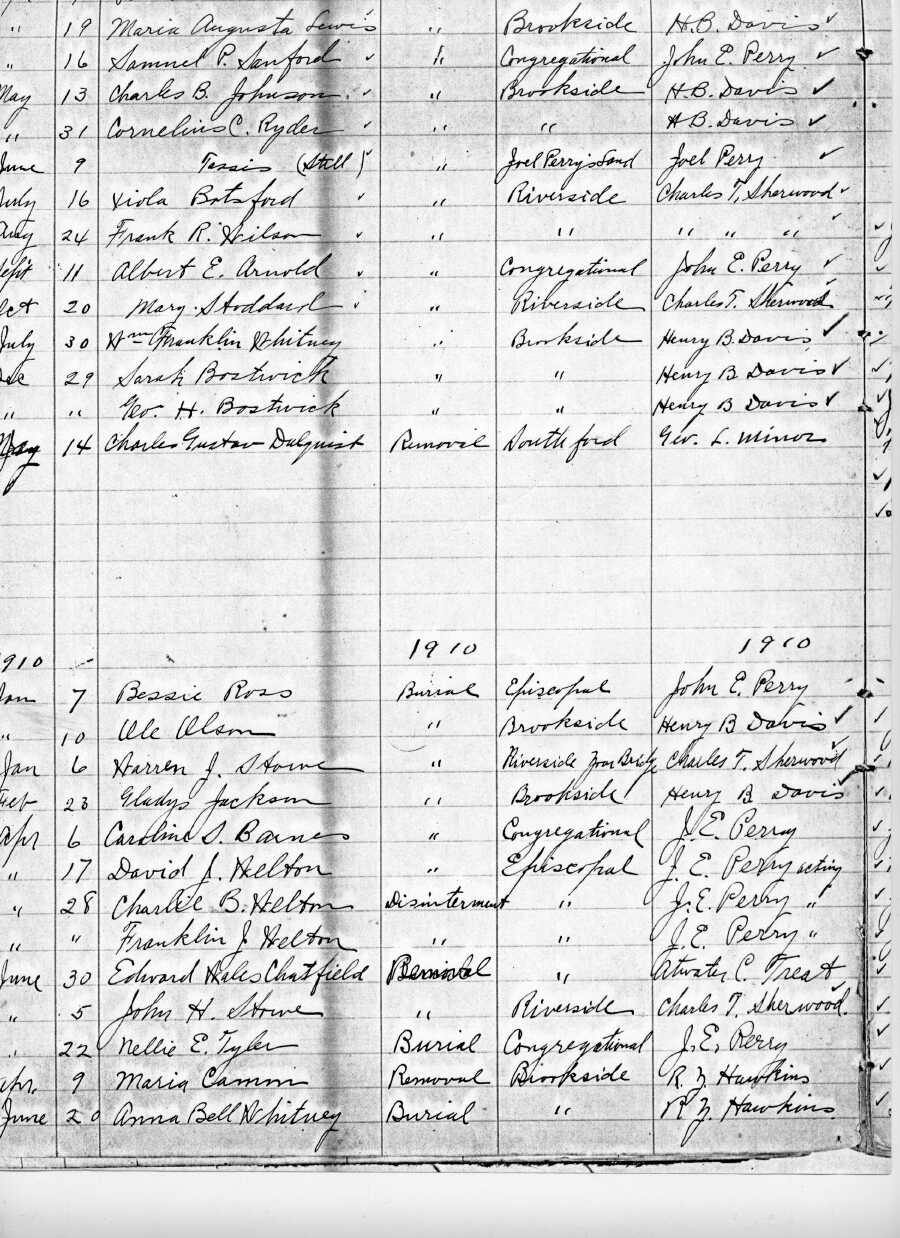 " 19 Maria Augusta Lewis " Brookside H.B. Davis ✓
" 16 Samuel P. Sanford ✓ " Congregational John E. Perry ✓
May 13 Charles B. Johnson ✓ " Brookside H.B. Davis ✓
" 31 Cornelius C. Ryder ✓ " " H B. Davis ✓
June 9 Tassis (Still) ✓ " Joel Perry's Land Joel Perry ✓
July 16 Viola Botsford ✓ " Riverside Charles T. Sherwood ✓
Aug 24 Frank R. Wilson ✓ " " " " " "
Sept 11 Albert E. Arnold ✓ " Congregational John E. Perry ✓
Oct 20 Mary Stoddard " Riverside Charles T. Sherwood
July 30 Wm Franklin Whitney " Brookside Henry B. Davis ✓
Dec 29 Sarah Bostwick " " Henry B Davis ✓
" " Geo. H. Bostwick " " Henry B Davis ✓
May 14 Charles Gustav Dalquist Removil Southford Geo. L. Minor
1910 1910 1910
Jan 7 Bessie Ross Burial Episcopal John E. Perry
" 10 Ole Olson " Brookside Henry B Davis ✓
Jan 6 Warren J. Stowe " Riverside Zoar Bridge Charles T. Sherwood ✓
Feb 23 Gladys Jackson " Brookside Henry B Davis ✓
Apr 6 Caroline S. Barnes " Congregational J. E. Perry
" 17 David J. Welton " Episcopal J. E. Perry acting
" 28 Charlie B. Welton Disinterment " J. E. Perry "
" " Franklin J. Welton " " J. E. Perry "
June 30 Edward Hales Chatfield Removal " Atwater C. Treat
" 5 John H. Stowe " Riverside Charles T. Sherwood.
" 22 Nellie E. Tyler Burial Congregational J. E. Perry
Apr. 9 Maria Cammi Removal Brookside R. Z. Hawkins
June 20 Anna Bell Whitney Burial " R Z. Hawkins